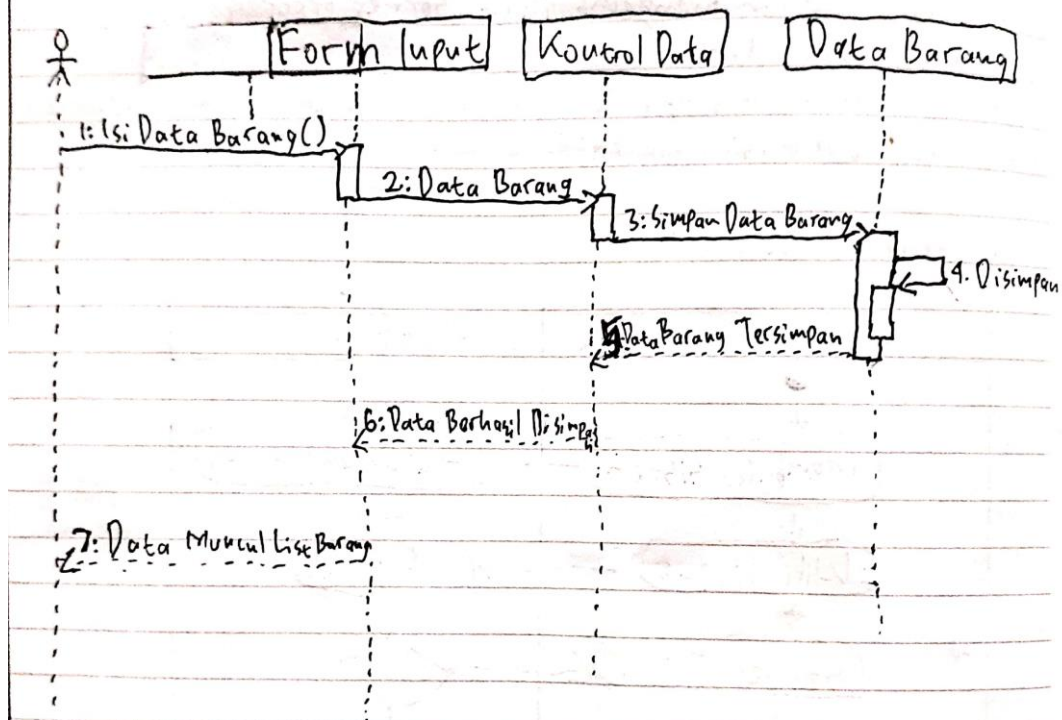 Form Input
Kontrol Data
Data Barang
1: Isi Data Barang()
2: Data Barang
3: Simpan Data Barang
4. Disimpan
5 Data Barang Tersimpan
6: Data Berhasil Disimpan
7: Data Muncul List Barang